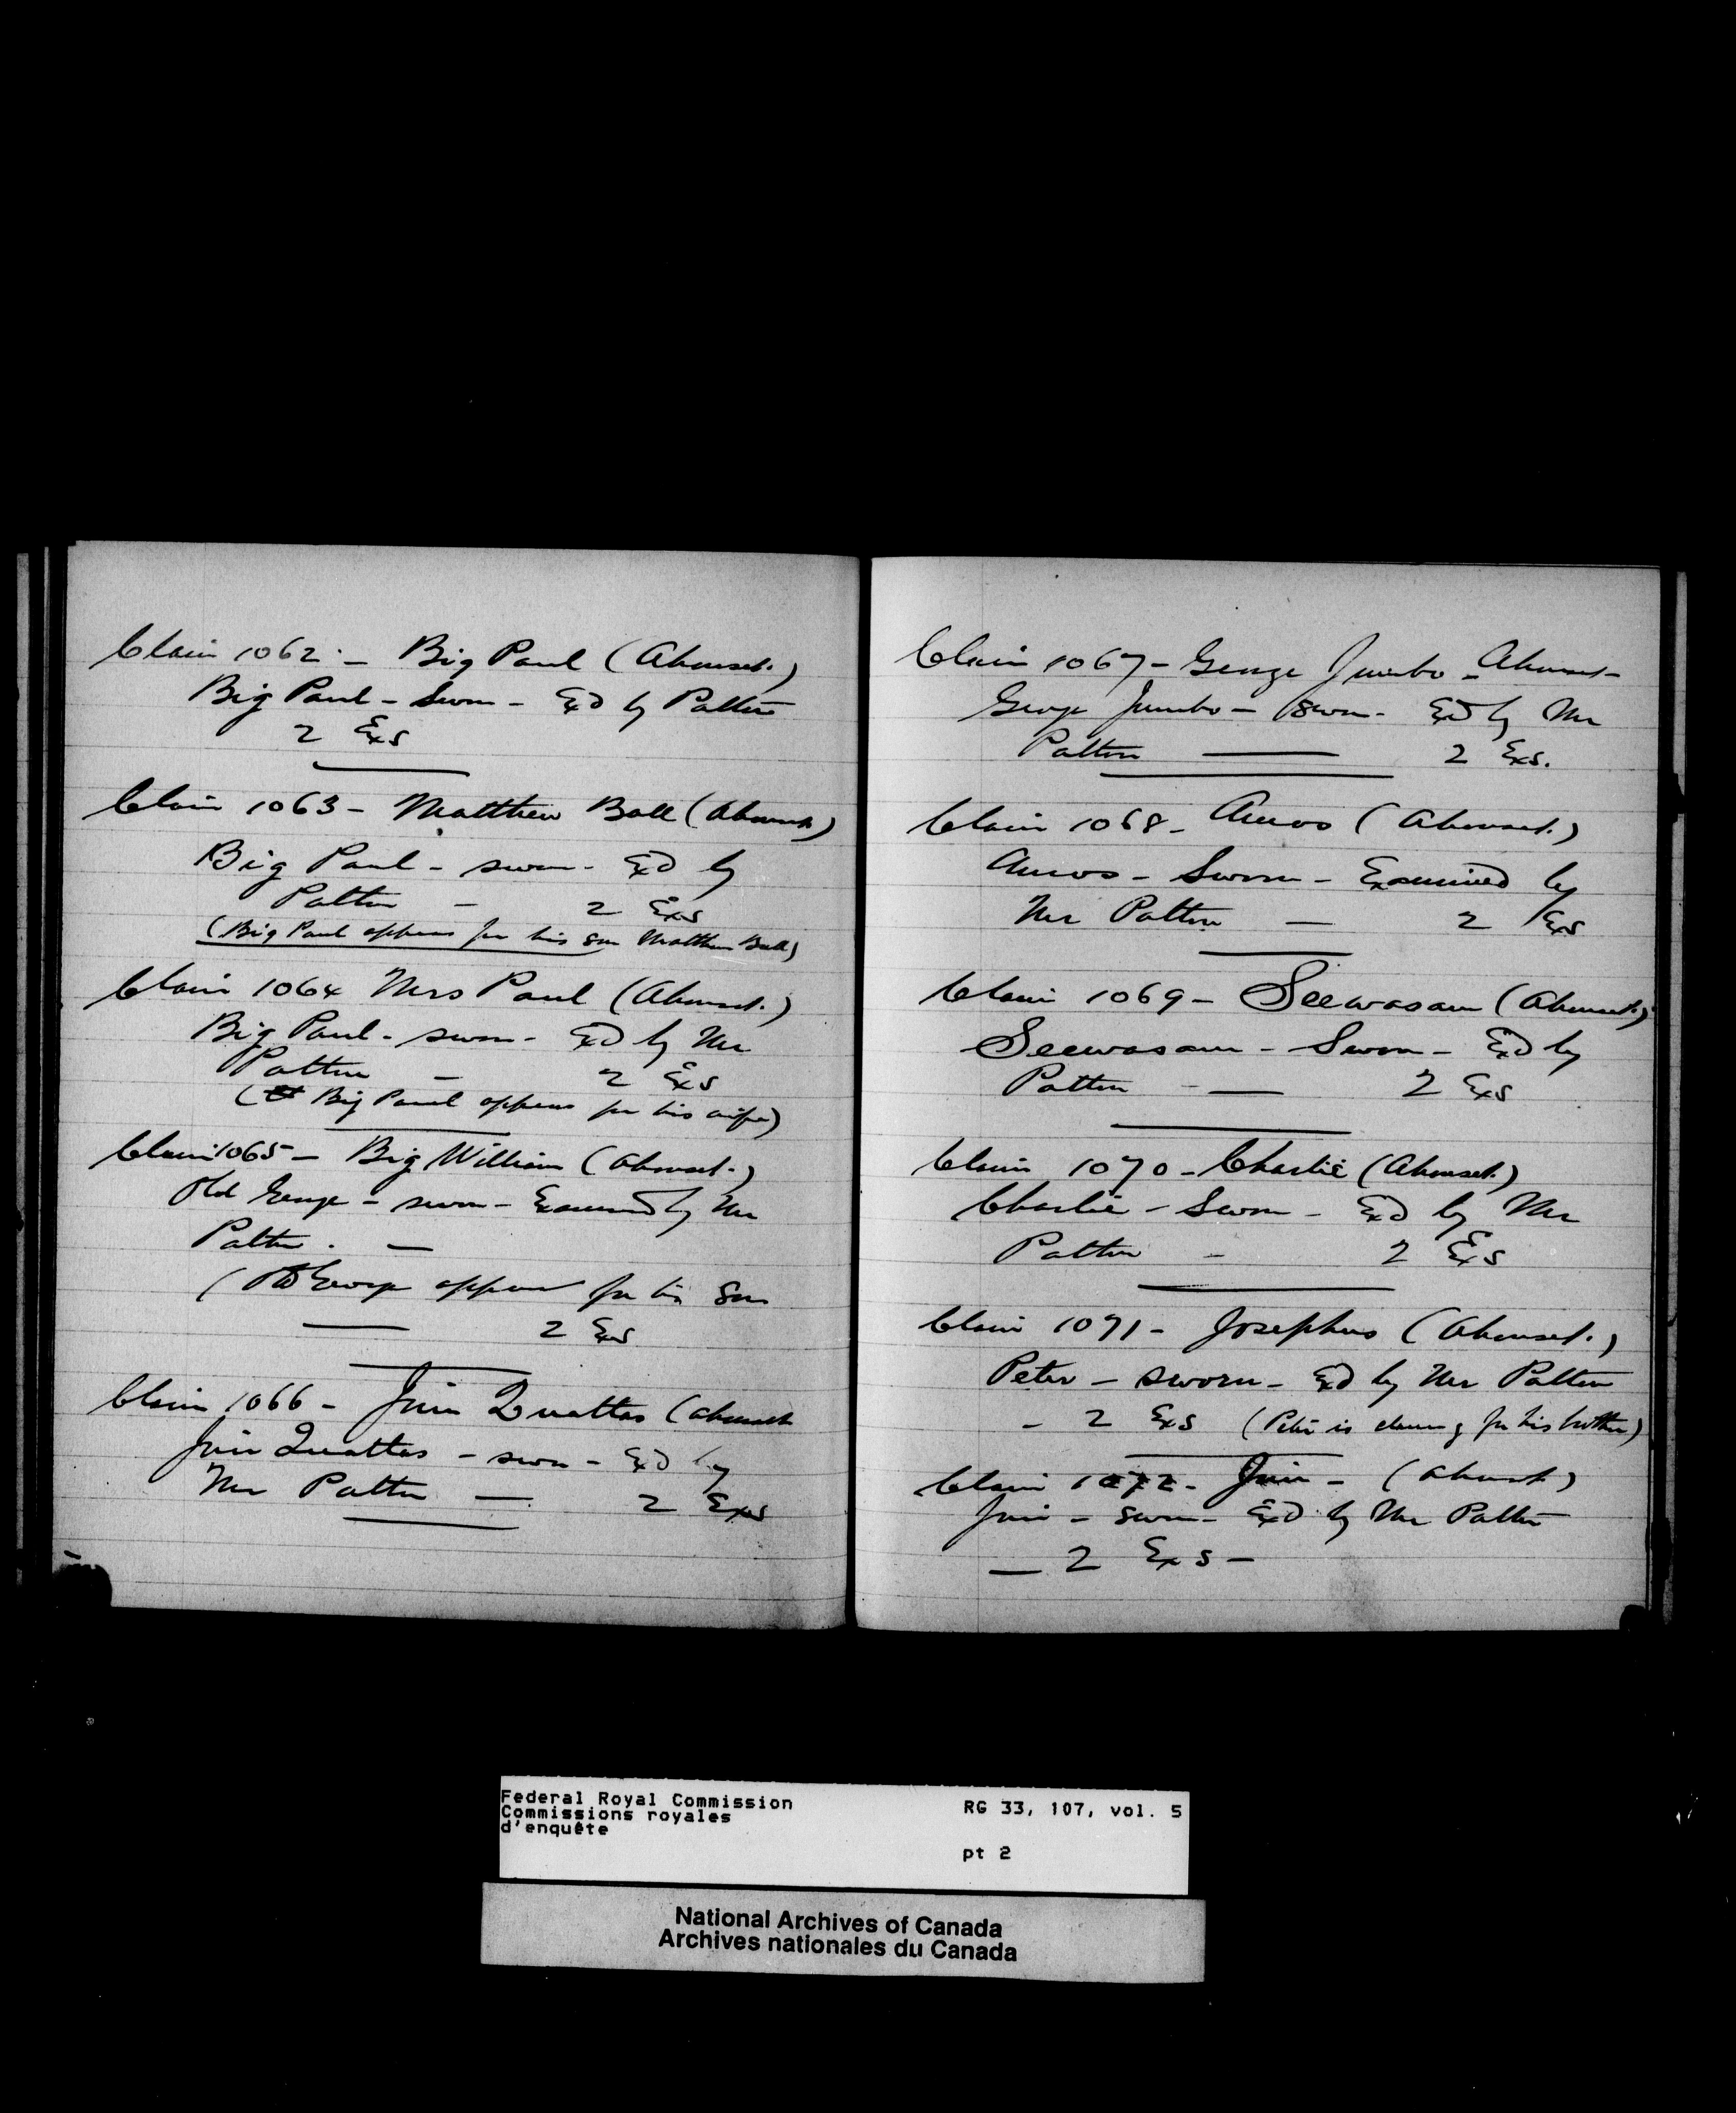 Claim 1062 - Big Paul (Ahouset.)
Big Paul - Sworn - Exd by Patton
2 Exs
Claim 1063 - Matthew Ball (Ahouset)
Big Paul - sworn - Exd by
Patton - 2 Exs
(Big Paul appears for his son Matthew Ball)
Claim 1064 Mrs Paul (Ahouset.)
Big Paul - sworn - Exd by Mr
Patton - 2 Exs
(Big Paul appears for his wife)
Claim 1065 - Big William (Ahouset.)
Old George - sworn - Examined by Mr
Patton. -
(Old George appears for his Son
2 Exs
Claim 1066 - Jim Quattas (Ahouset
Jim Quattas - sworn - Exd by
Mr Patton - 2 Exs
Claim 1067 - George Jumbo - Ahouset -
George Jumbo - Sworn - Exd by Mr
Patton - 2 Exs.
Claim 1068 - Amos (Ahouset.)
Amos - Sworn - Examined by
Mr Patton - 2 Exs
Claim 1069 - Seewasam (Ahouset.)
Seewasam - Sworn - Exd by
Patton - 2 Exs
Claim 1070 - Charlie (Ahouset.)
Charlie - Sworn - Exd by Mr
Patton - 2 Exs
Claim 1071 - Josephus (Ahouset.)
Peter - sworn - Exd by Mr Patton
- 2 Exs (Peter is claiming for his brother)
Claim 1072 - Jim - (Ahouset)
Jim - sworn - Exd by Mr Patton
- 2 Exs -
Federal Royal Commission RG 33, 107, vol. 5
Commissions royales
d'enquête
pt 2
National Archives of Canada
Archives nationales du Canada